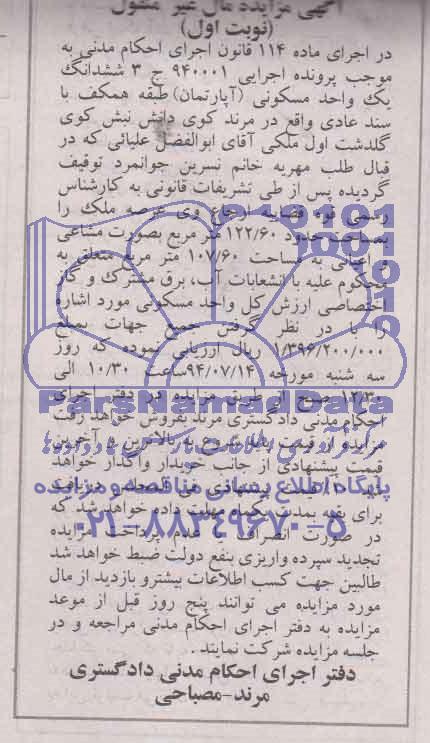 آگهی مزایده مال غیر منقول
(نوبت اول)
در اجرای ماده ۱۱۴ قانون اجرای احکام مدنی به
موجب پرونده اجرایی ۹۴۰۰۰۱ ج ۳ ششدانگ
یک واحد مسکونی (آپارتمان) طبقه همکف با
سند عادی واقع در مرند کوی دانش نبش کوی
گلدشت اول ملکی آقای ابوالفضل علیائی که در
قبال طلب مهریه خانم نسرین جوانمرد توقیف
گردیده پس از طی تشریفات قانونی به کارشناس
رسمی قوه قضاییه ارجاع وی عرصه ملک را
بمساحت حدود ۱۲۲/۶۰ متر مربع بصورت مشاعی
و اعیانی به مساحت ۱۰۷/۶۰ متر مربع متعلق به
محکوم علیه با انشعابات آب، برق مشترک و گاز
اختصاصی ارزش کل واحد مسکونی مورد اشاره
را با در نظر گرفتن جمیع جهات بمبلغ
۱/۳۹۶/۲۰۰/۰۰۰ ریال ارزیابی نموده که روز
سه شنبه مورخه ۹۴/۰۷/۱۴ ساعت ۱۰/۳۰ الی
۱۲/۳۰ صبح از طریق مزایده در دفتر اجرای
احکام مدنی دادگستری مرند بفروش خواهد رفت
مزایده از قیمت پایه شروع به بالاترین و آخرین
قیمت پیشنهادی از جانب خریدار واگذار خواهد
قیمت پیشنهادی فی المجلس دریافت
برای بقیه بمدت یکماه مهلت داده خواهد شد که
در صورت انصراف یا عدم پرداخت مزایده
تجدید سپرده واریزی بنفع دولت ضبط خواهد شد
طالبین جهت کسب اطلاعات بیشترو بازدید از مال
مورد مزایده می توانند پنج روز قبل از موعد
مزایده به دفتر اجرای احکام مدنی مراجعه و در
جلسه مزایده شرکت نمایند .
دفتر اجرای احکام مدنی دادگستری
مرند-مصباحی
ParsNamadData
پایگاه اطلاع رسانی مناقصه و مزایده
۰۲۱-۸۸۳۴۹۶۷۰-۵